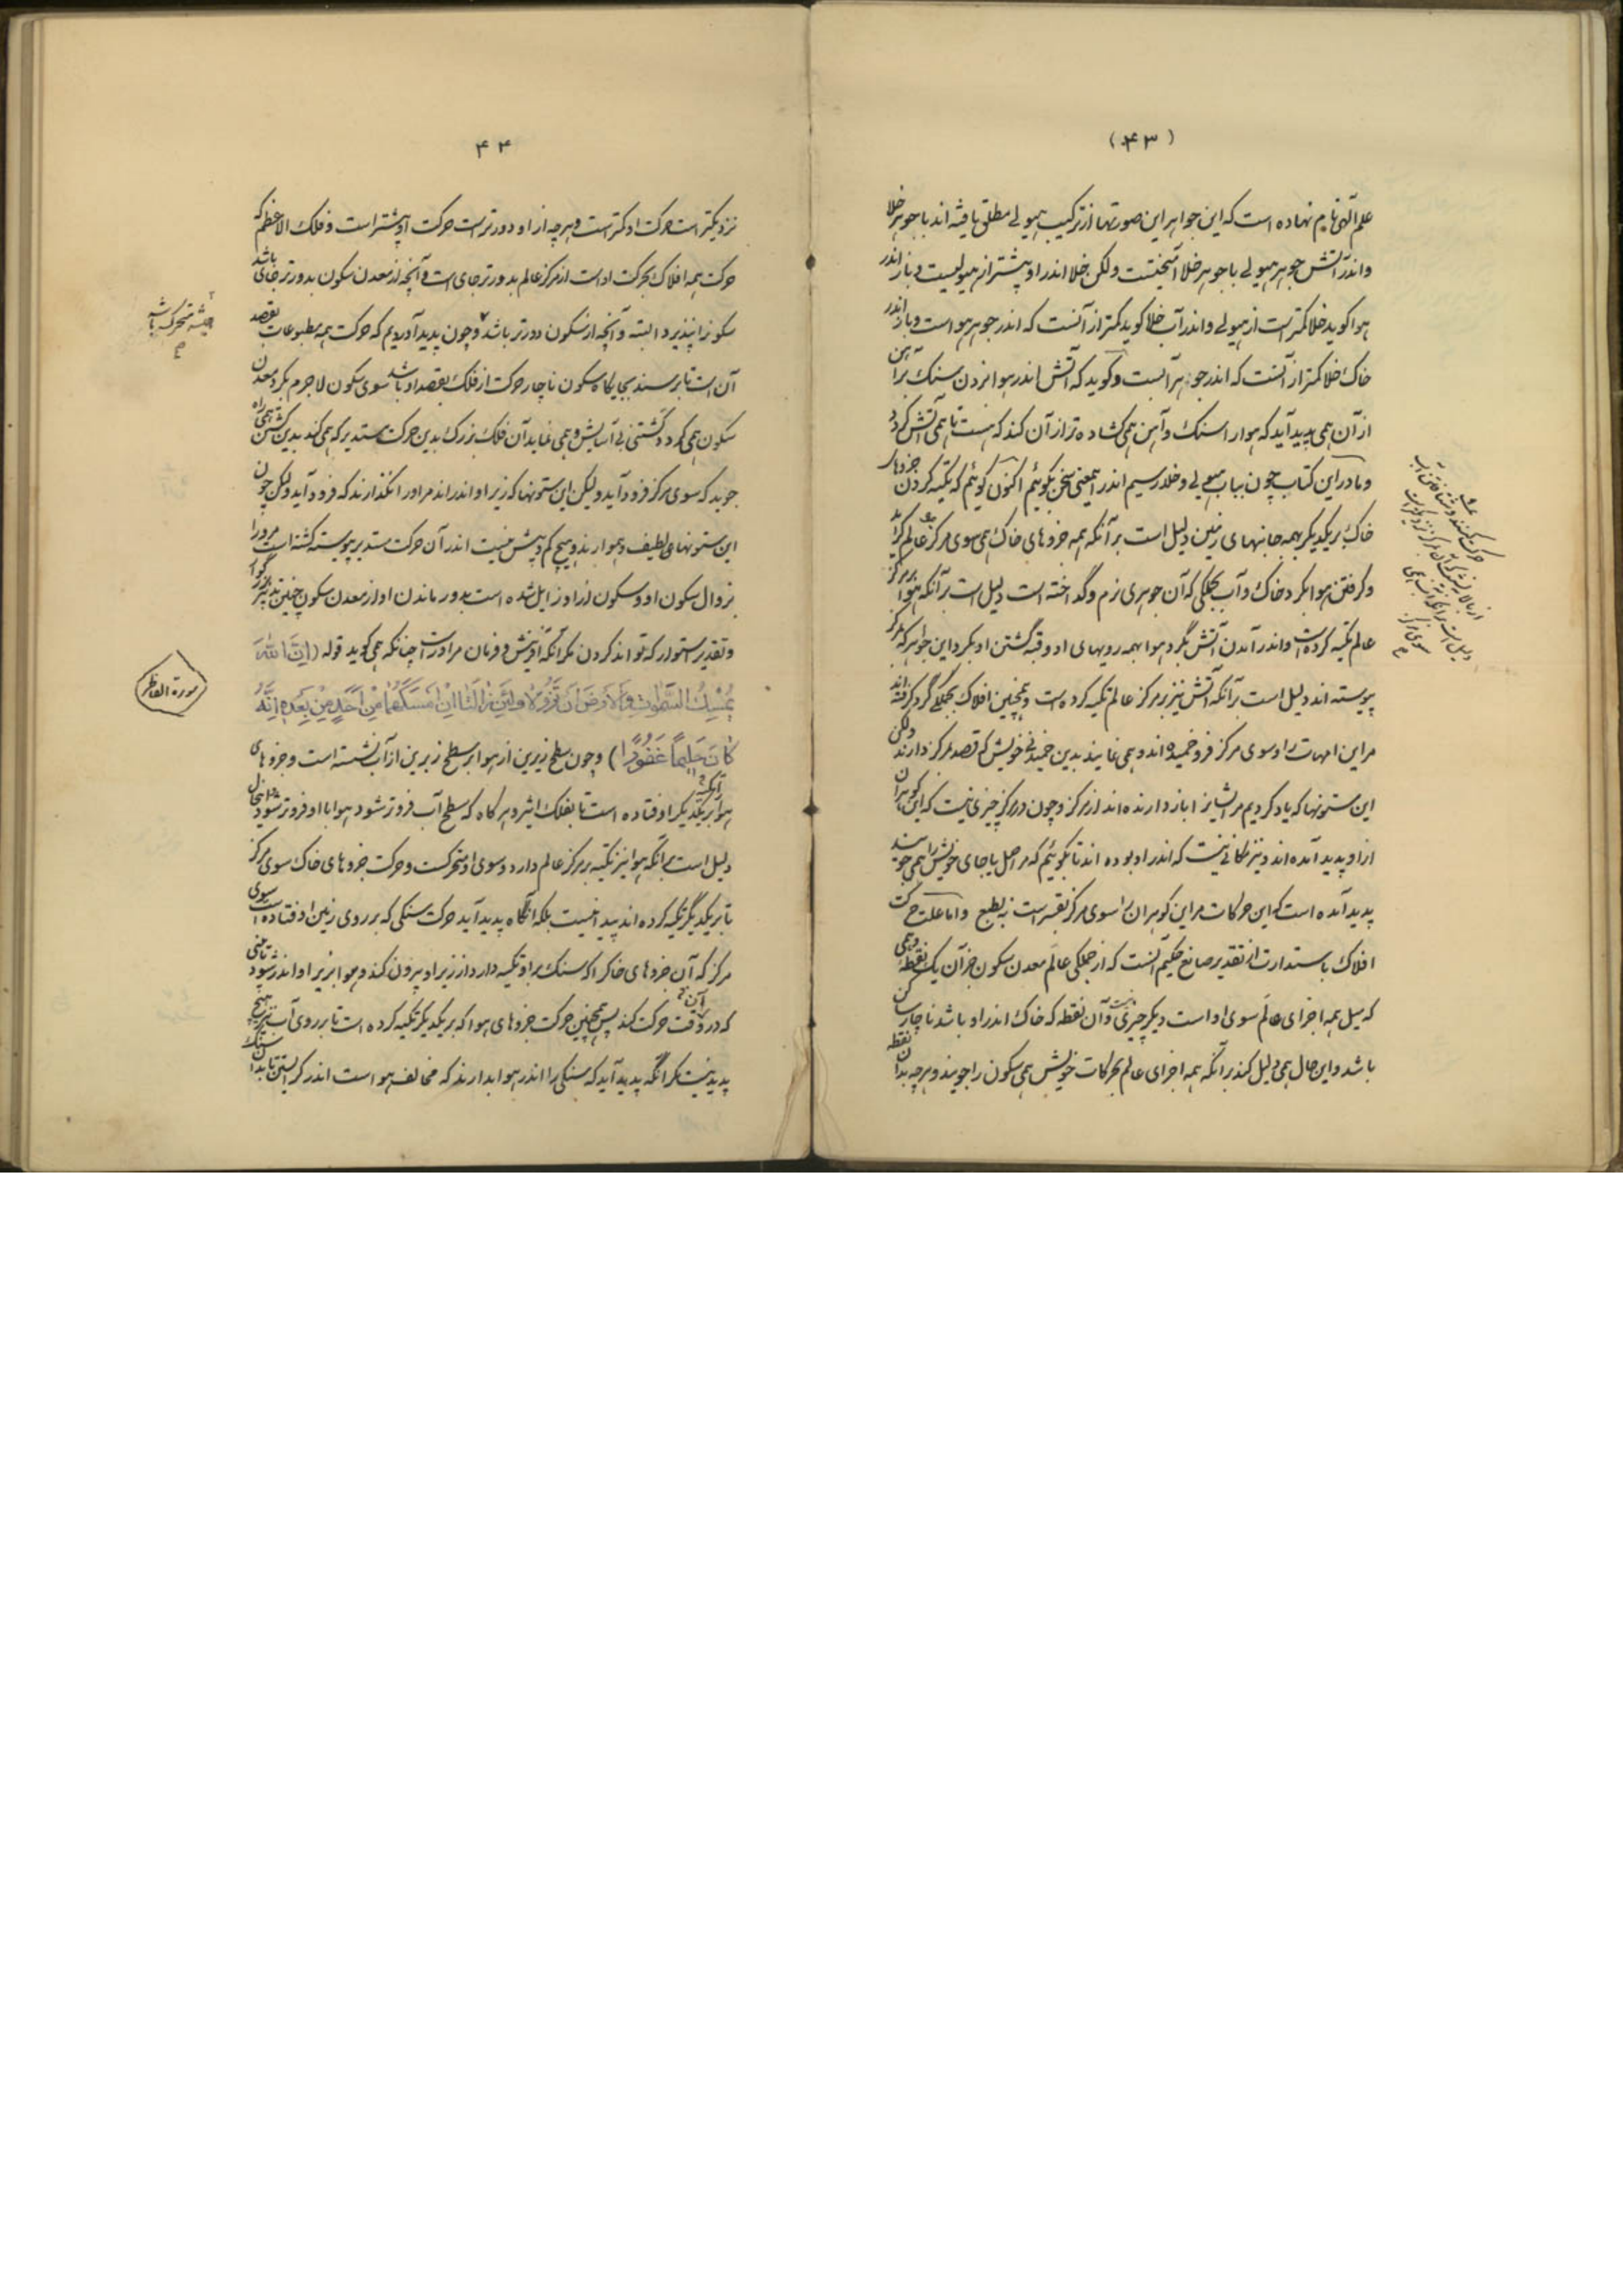 (۴۳)
علم آلهی نام نهاده است که این جواهر این صورتها از ترکیب هیولی مطلق یافته‌اند با جوهر خلا
و اندر آتش جوهر هیولی با جوهر خلا آمیختست ولکن خلا اندر او بیشتر از هیولیست و باز اندر
هوا گوید خلا کمتر است از هیولی و اندر آب خلا گوید کمتر از آنست که اندر جوهر هواست و باز اندر
خاک خلا کمتر از آنست که اندر جوهر آبست و گوید که آتش اندر هوا از زدن سنک بر آهن
از آن همی پدید آید که هوا را سنک و آهن همی گشاده‌تر از آن کند که هست تا همی آتش گردد
و ما در این کتاب چون بباب هیولی و خلا رسیم اندر این معنی سخن بگوئیم اکنون گوئیم که تکیه کردن جزوهای
خاک بر یکدیگر بهمه جانبهای زمین دلیل است بر آنکه همه جزوهای خاک همی سوی مرکز عالم گراید
و گرفتن هوا بگرد خاک و آب بجملگی که آن جوهری نرم و گداخته است دلیل است بر آنکه هوا بر مرکز
عالم تکیه کرده است و اندر آمدن آتش بگرد هوا بهمه رویهای او و قبه گشتن او بگرد این جواهر که بمرکز
پیوسته‌اند دلیل است بر آنکه آتش نیز بر مرکز عالم تکیه کرده است و همچنین افلاک بجملگی گرد گرفته‌اند
مر این امهات را و سوی مرکز فرو خمیده‌اند و همی نمایند بدین خمیدنی خویش که قصد مرکز دارند ولکن
این ستونها که یاد کردیم مر ایشانرا باز دارنده‌اند از مرکز و چون در مرکز چیزی نیست که این گوهران
از او پدید آمده‌اند و نیز مکانی نیست که اندر او بوده‌اند تا بگوئیم که مر اصل یا جای خویش را همی جویند
پدید آمده است که این حرکات مر این گوهران را سوی مرکز بقسر است نه بطبع و اما علت حرکت
افلاک باستدارت از تقدیر صانع حکیم آنست که از جملگی عالم معدن سکون جز آن یک نقطهٔ وهمی
که میل همه اجزای عالم سوی او است دیگر چیزی نیست و آن نقطه که خاک اندر او باشد ناچار ساکن
باشد و این حال همی دلیل کند بر آنکه همه اجزای عالم بحرکات خویش همی سکون را جویند و هرچه بدان نقطه
۴۴
نزدیکتر است حرکت او کمتر است و هرچه از او دورتر است حرکت او بیشتر است و فلک الاعظم که
حرکت همه افلاک بحرکت اوست از مرکز عالم بدورتر جای است و آنچه از معدن سکون بدورتر جای باشد
سکون را نپذیرد البته و آنچه از سکون دورتر باشد و چون پدید آوردیم که حرکت همه مطبوعات بقصد
آن است تا برسند بجایگاه سکون ناچار حرکت از فلک بقصد او باشد سوی سکون لاجرم بگرد معدن
سکون همی گردد گشتنی بی آسایش و همی نماید آن فلک بزرگ بدین حرکت مستدیر که همی کند بدین گشتن همی راه
جوید که سوی مرکز فرود آید ولیکن این ستونها که زیر او اندراند مر او را نگذارند که فرود آید ولکن چون
این ستونهای لطیف و هموارند و هیچ کم و بیش نیست اندر آن حرکت مستدیر پیوسته گشته است مر او را
بزوال سکون او و سکون از او زایل شده است بدور ماندن او از معدن سکون چنین تدبیر بزرگوار
و تقدیر استوار که تواند کردن مگر آنکه آفرینش و فرمان مر او راست چنانکه همی گوید قوله (إِنَّ اللّٰهَ
يُمْسِكُ السَّمٰوٰاتِ وَالْأَرْضَ أَنْ تَزُولاٰ وَلَئِنْ زٰالَتٰا إِنْ أَمْسَكَهُمٰا مِنْ أَحَدٍ مِنْ بَعْدِهِ إِنَّهُ
كٰانَ حَلِيمًا غَفُورًا) و چون سطح زیرین از هوا بر سطح زبرین از آب نشسته است و جزوهای
هوا بر یکدیگر اوفتاده است تا بفلک اثیر و هر گاه که سطح آب فروتر شود هوا با او فروتر شود این حال
دلیل است بر آنکه هوا نیز تکیه بر مرکز عالم دارد و سوی او متحرکست و حرکت جزوهای خاک سوی مرکز
تا بر یکدیگر تکیه کرده‌اند پیدا نیست بلکه آنگاه پدید آید حرکت سنگی که بر روی زمین اوفتاده است سوی
مرکز که آن جزوهای خاک را که سنک بر او تکیه دارد از زیر او بیرون کنند و هوا بزیر او اندر شود تا نبینی
که در وقت حرکت کند پس همچنین حرکت جزوهای هوا که بر یکدیگر تکیه کرده است تا بر روی آب نیز هیچ
پدید نیست مگر آنگه پدید آید که سنگی را اندر هوا بدارند که مخالف هواست اندر گرایستن تا بدان سنک
سورة الفاطر
همیشه متحرک باشد